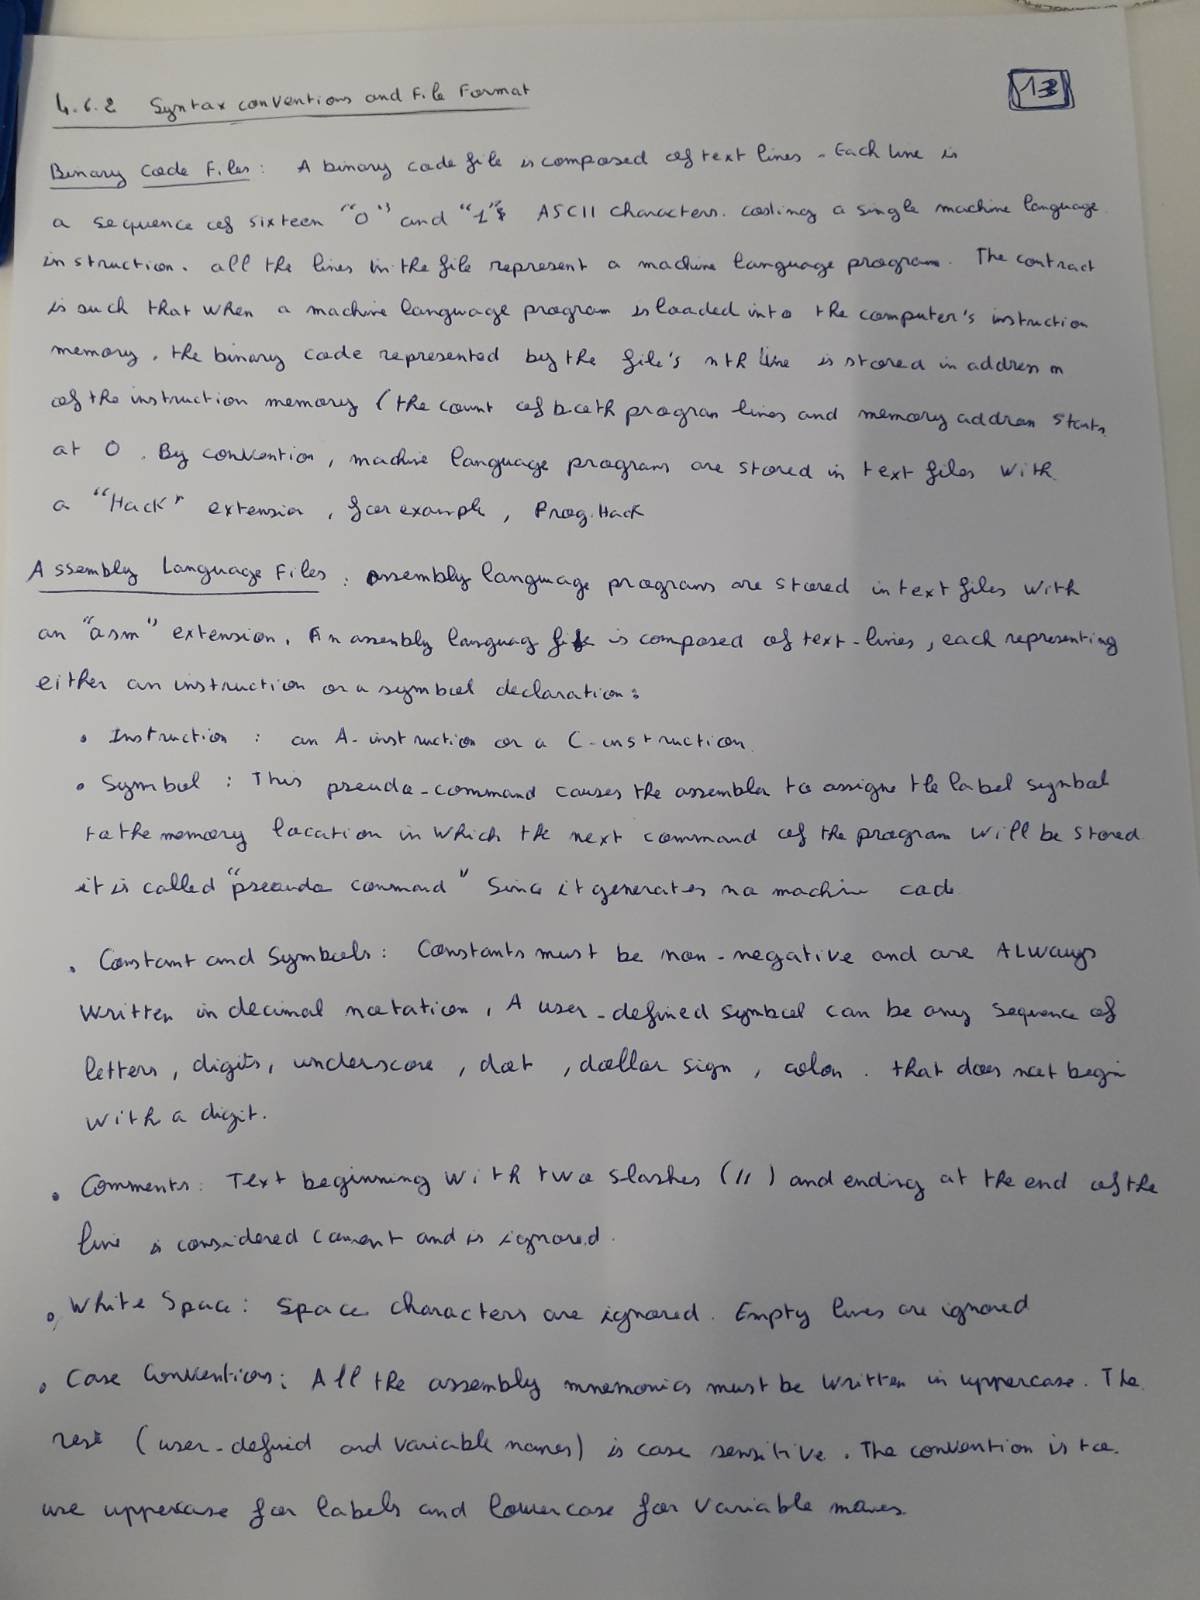 4.6.2 Syntax conventions and File Format
13
Binary Code Files: A binary code file is composed of text lines. Each line is
a sequence of sixteen "0" and "1" ASCII characters. coding a single machine language
instruction. all the lines in the file represent a machine language program. The contract
is such that when a machine language program is loaded into the computer's instruction
memory, the binary code represented by the file's nth line is stored in address n
of the instruction memory (the count of both program lines and memory address starts
at 0. By convention, machine language programs are stored in text files with
a "Hack" extension, for example, Prog.Hack
Assembly Language Files: Assembly language programs are stored in text files with
an "asm" extension. An assembly languag file is composed of text-lines, each representing
either an instruction or a symbol declaration:
• Instruction: an A-instruction or a C-instruction.
• Symbol: This pseudo-command causes the assembler to assigne the label symbol
to the memory location in which the next command of the program will be stored
it is called "pseudo command" since it generates no machine code
• Constant and Symbols: Constants must be non-negative and are ALways
written in decimal notation, A user-defined symbol can be any sequence of
letters, digits, underscore, dot, dollar sign, colon. that does not begin
with a digit.
• Comments: Text beginning with two slashes (//) and ending at the end of the
line is considered coment and is ignored.
• White Space: Space characters are ignored. Empty lines are ignored
• Case Conventions: All the assembly mnemonics must be written in uppercase. The
rest (user-defined and variable names) is case sensitive. The convention is to
use uppercase for labels and lowercase for variable names.